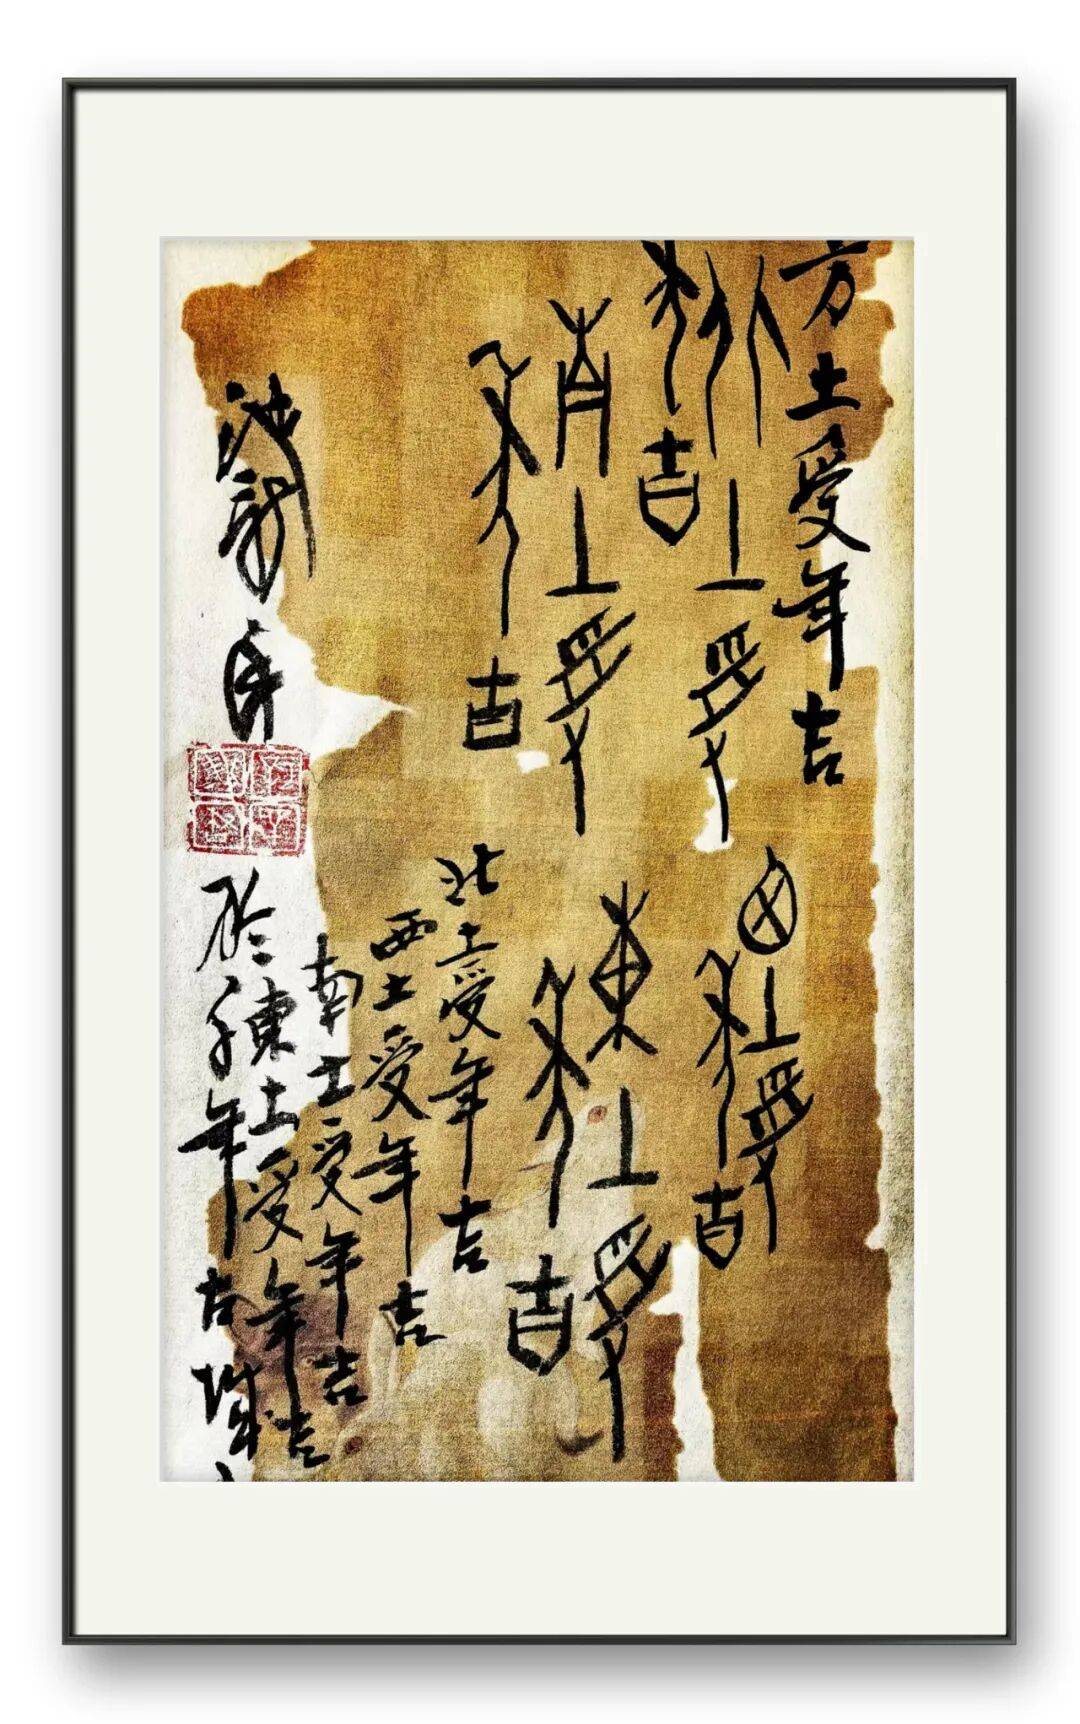 方土受年吉
北土受
年吉
南土受
年吉
西土受
年吉
東土受
年吉
北土受年吉
西土受年吉
南土受年吉
東土受年吉
於千年古城